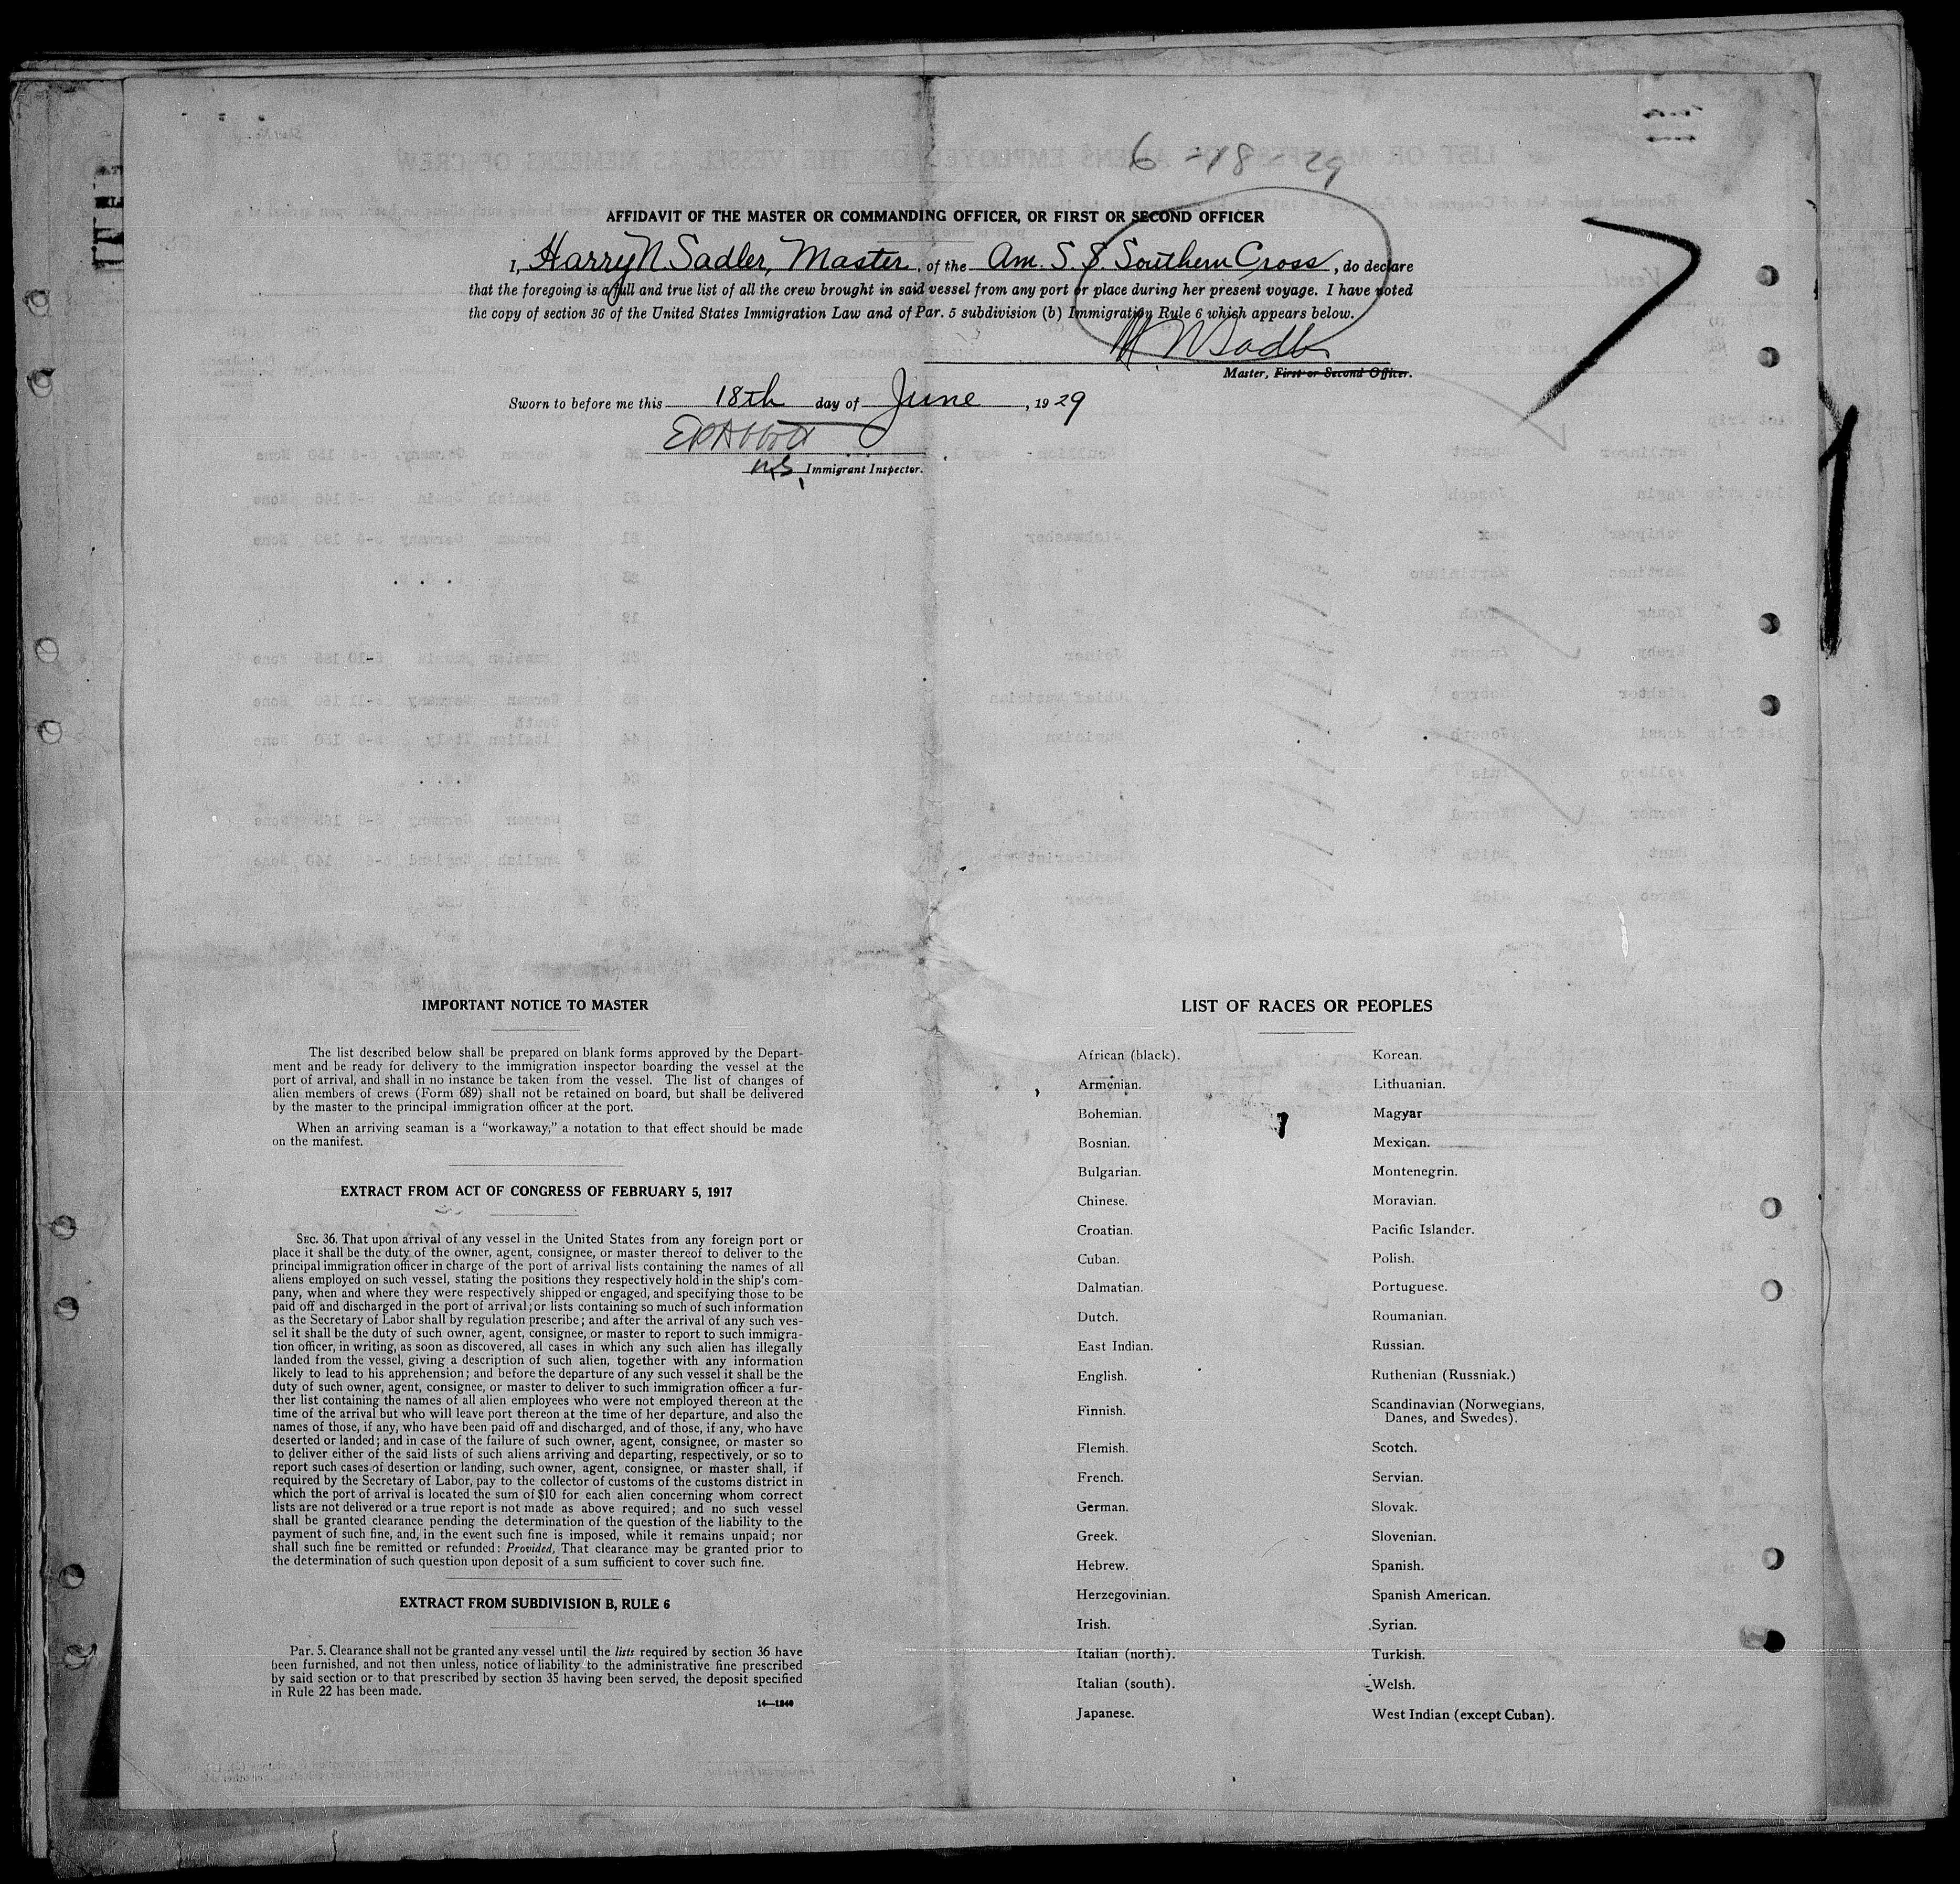 6-18-29
AFFIDAVIT OF THE MASTER OR COMMANDING OFFICER, OR FIRST OR SECOND OFFICER
I, Harry N. Sadler, Master, of the Am. S. S. Southern Cross, do declare
that the foregoing is a full and true list of all the crew brought in said vessel from any port or place during her present voyage. I have noted
the copy of section 36 of the United States Immigration Law and of Par. 5 subdivision (b) Immigration Rule 6 which appears below.
H. N. Sadler
Master, First or Second Officer.
Sworn to before me this 18th day of June, 1929
Immigrant Inspector.
IMPORTANT NOTICE TO MASTER
The list described below shall be prepared on blank forms approved by the Depart-
ment and be ready for delivery to the immigration inspector boarding the vessel at the
port of arrival, and shall in no instance be taken from the vessel. The list of changes of
alien members of crews (Form 689) shall not be retained on board, but shall be delivered
by the master to the principal immigration officer at the port.
When an arriving seaman is a "workaway," a notation to that effect should be made
on the manifest.
EXTRACT FROM ACT OF CONGRESS OF FEBRUARY 5, 1917
SEC. 36. That upon arrival of any vessel in the United States from any foreign port or
place it shall be the duty of the owner, agent, consignee, or master thereof to deliver to the
principal immigration officer in charge of the port of arrival lists containing the names of all
aliens employed on such vessel, stating the positions they respectively hold in the ship's com-
pany, when and where they were respectively shipped or engaged, and specifying those to be
paid off and discharged in the port of arrival; or lists containing so much of such information
as the Secretary of Labor shall by regulation prescribe; and after the arrival of any such ves-
sel it shall be the duty of such owner, agent, consignee, or master to report to such immigra-
tion officer, in writing, as soon as discovered, all cases in which any such alien has illegally
landed from the vessel, giving a description of such alien, together with any information
likely to lead to his apprehension; and before the departure of any such vessel it shall be the
duty of such owner, agent, consignee, or master to deliver to such immigration officer a fur-
ther list containing the names of all alien employees who were not employed thereon at the
time of the arrival but who will leave port thereon at the time of her departure, and also the
names of those, if any, who have been paid off and discharged, and of those, if any, who have
deserted or landed; and in case of the failure of such owner, agent, consignee, or master so
to deliver either of the said lists of such aliens arriving and departing, respectively, or so to
report such cases of desertion or landing, such owner, agent, consignee, or master shall, if
required by the Secretary of Labor, pay to the collector of customs of the customs district in
which the port of arrival is located the sum of $10 for each alien concerning whom correct
lists are not delivered or a true report is not made as above required; and no such vessel
shall be granted clearance pending the determination of the question of the liability to the
payment of such fine, and, in the event such fine is imposed, while it remains unpaid; nor
shall such fine be remitted or refunded: Provided, That clearance may be granted prior to
the determination of such question upon deposit of a sum sufficient to cover such fine.
EXTRACT FROM SUBDIVISION B, RULE 6
Par. 5. Clearance shall not be granted any vessel until the lists required by section 36 have
been furnished, and not then unless, notice of liability to the administrative fine prescribed
by said section or to that prescribed by section 35 having been served, the deposit specified
in Rule 22 has been made.
14—1240
LIST OF RACES OR PEOPLES
African (black).
Armenian.
Bohemian.
Bosnian.
Bulgarian.
Chinese.
Croatian.
Cuban.
Dalmatian.
Dutch.
East Indian.
English.
Finnish.
Flemish.
French.
German.
Greek.
Hebrew.
Herzegovinian.
Irish.
Italian (north).
Italian (south).
Japanese.
Korean.
Lithuanian.
Magyar
Mexican.
Montenegrin.
Moravian.
Pacific Islander.
Polish.
Portuguese.
Roumanian.
Russian.
Ruthenian (Russniak.)
Scandinavian (Norwegians,
Danes, and Swedes).
Scotch.
Servian.
Slovak.
Slovenian.
Spanish.
Spanish American.
Syrian.
Turkish.
Welsh.
West Indian (except Cuban).